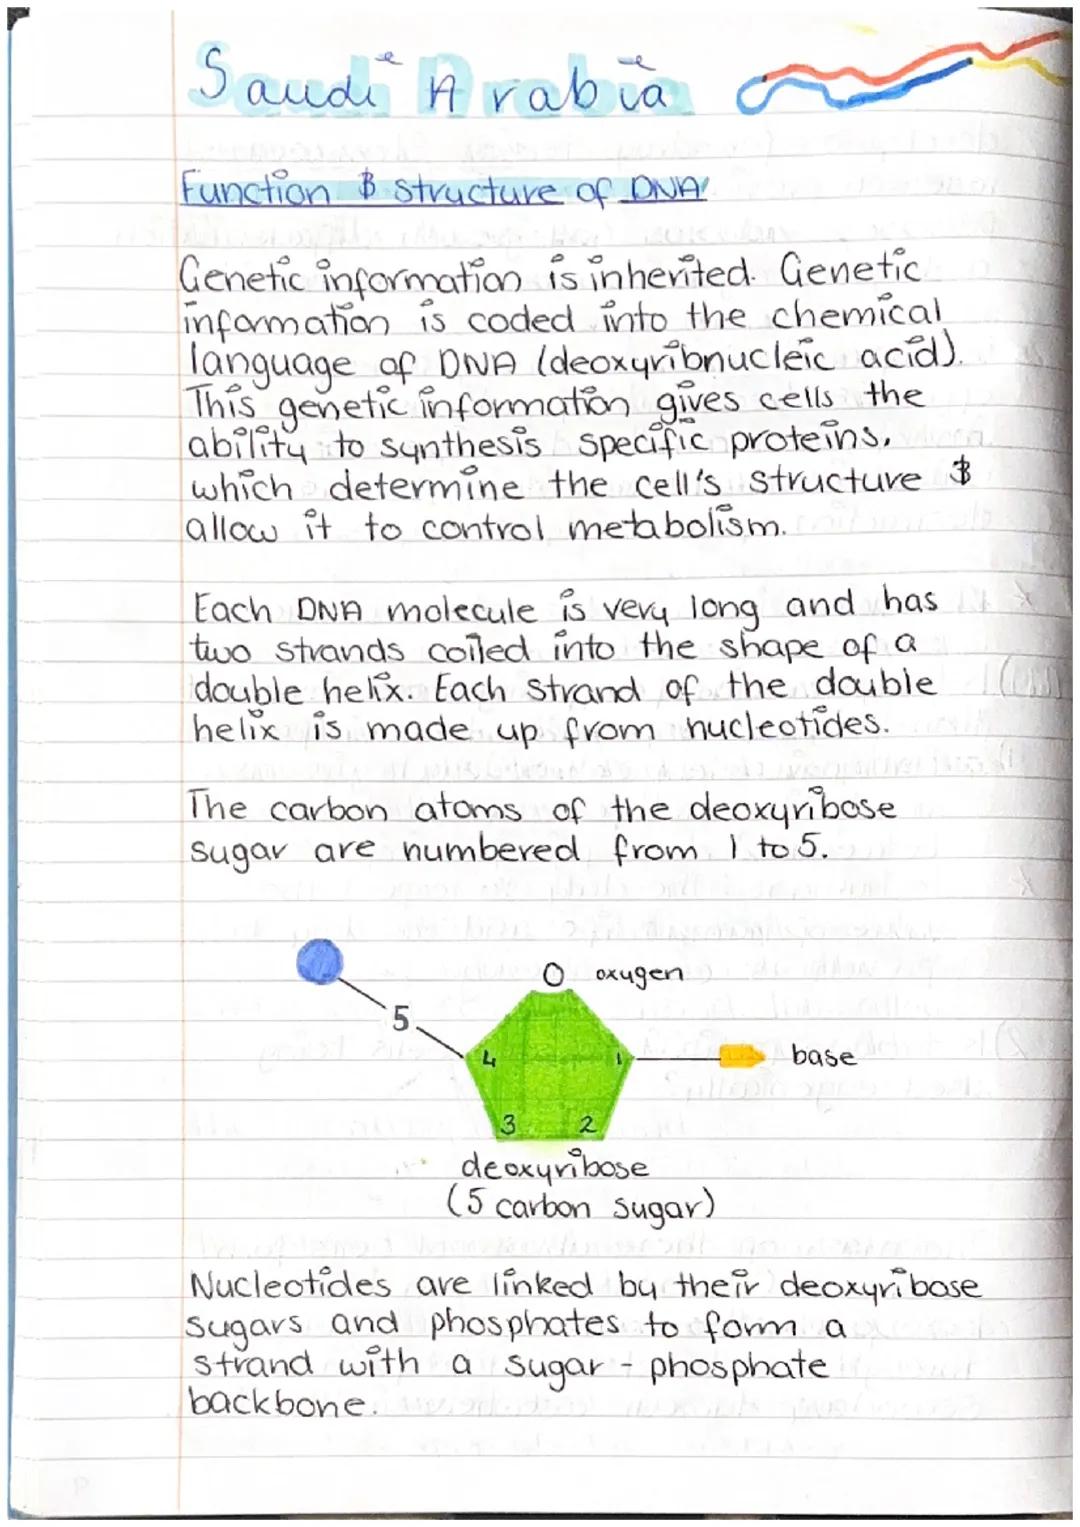 Saudi Arabia
Function & structure of DNA
Genetic information is inherited. Genetic
information is coded into the chemical
language of DNA (deoxyribnucleic acid).
This genetic information gives cells the
ability to synthesis specific proteins,
which determine the cell's structure &
allow it to control metabolism.
Each DNA molecule is very long and has
two strands coiled into the shape of a
double helix. Each strand of the double
helix is made up from nucleotides.
The carbon atoms of the deoxyribose
sugar are numbered from 1 to 5.
O oxygen
5
4
1
base
3
2
deoxyribose
(5 carbon sugar)
Nucleotides are linked by their deoxyribose
sugars and phosphates to form a
strand with a sugar - phosphate
backbone.